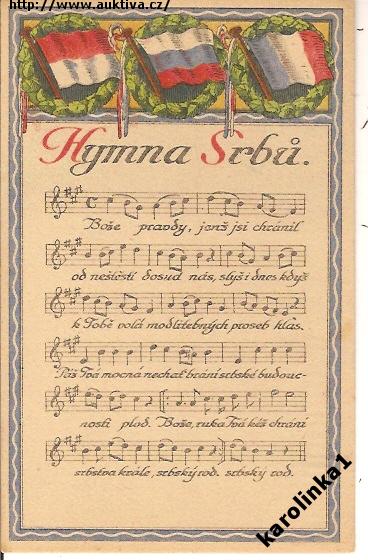 http://www.auktiva.cz/
Hymna Srbů.
Bože pravdy, jenž jsi chránil
od neštěstí dosud nás, slyš i dnes když
k Tobě volá modlitebných proseb hlas.
Páž Tvá mocná nechať brání srbské budouc-
nosti plod. Bože, ruka Tvá kéž chrání
srbstva krále, srbský rod. srbský rod.
karolinka1